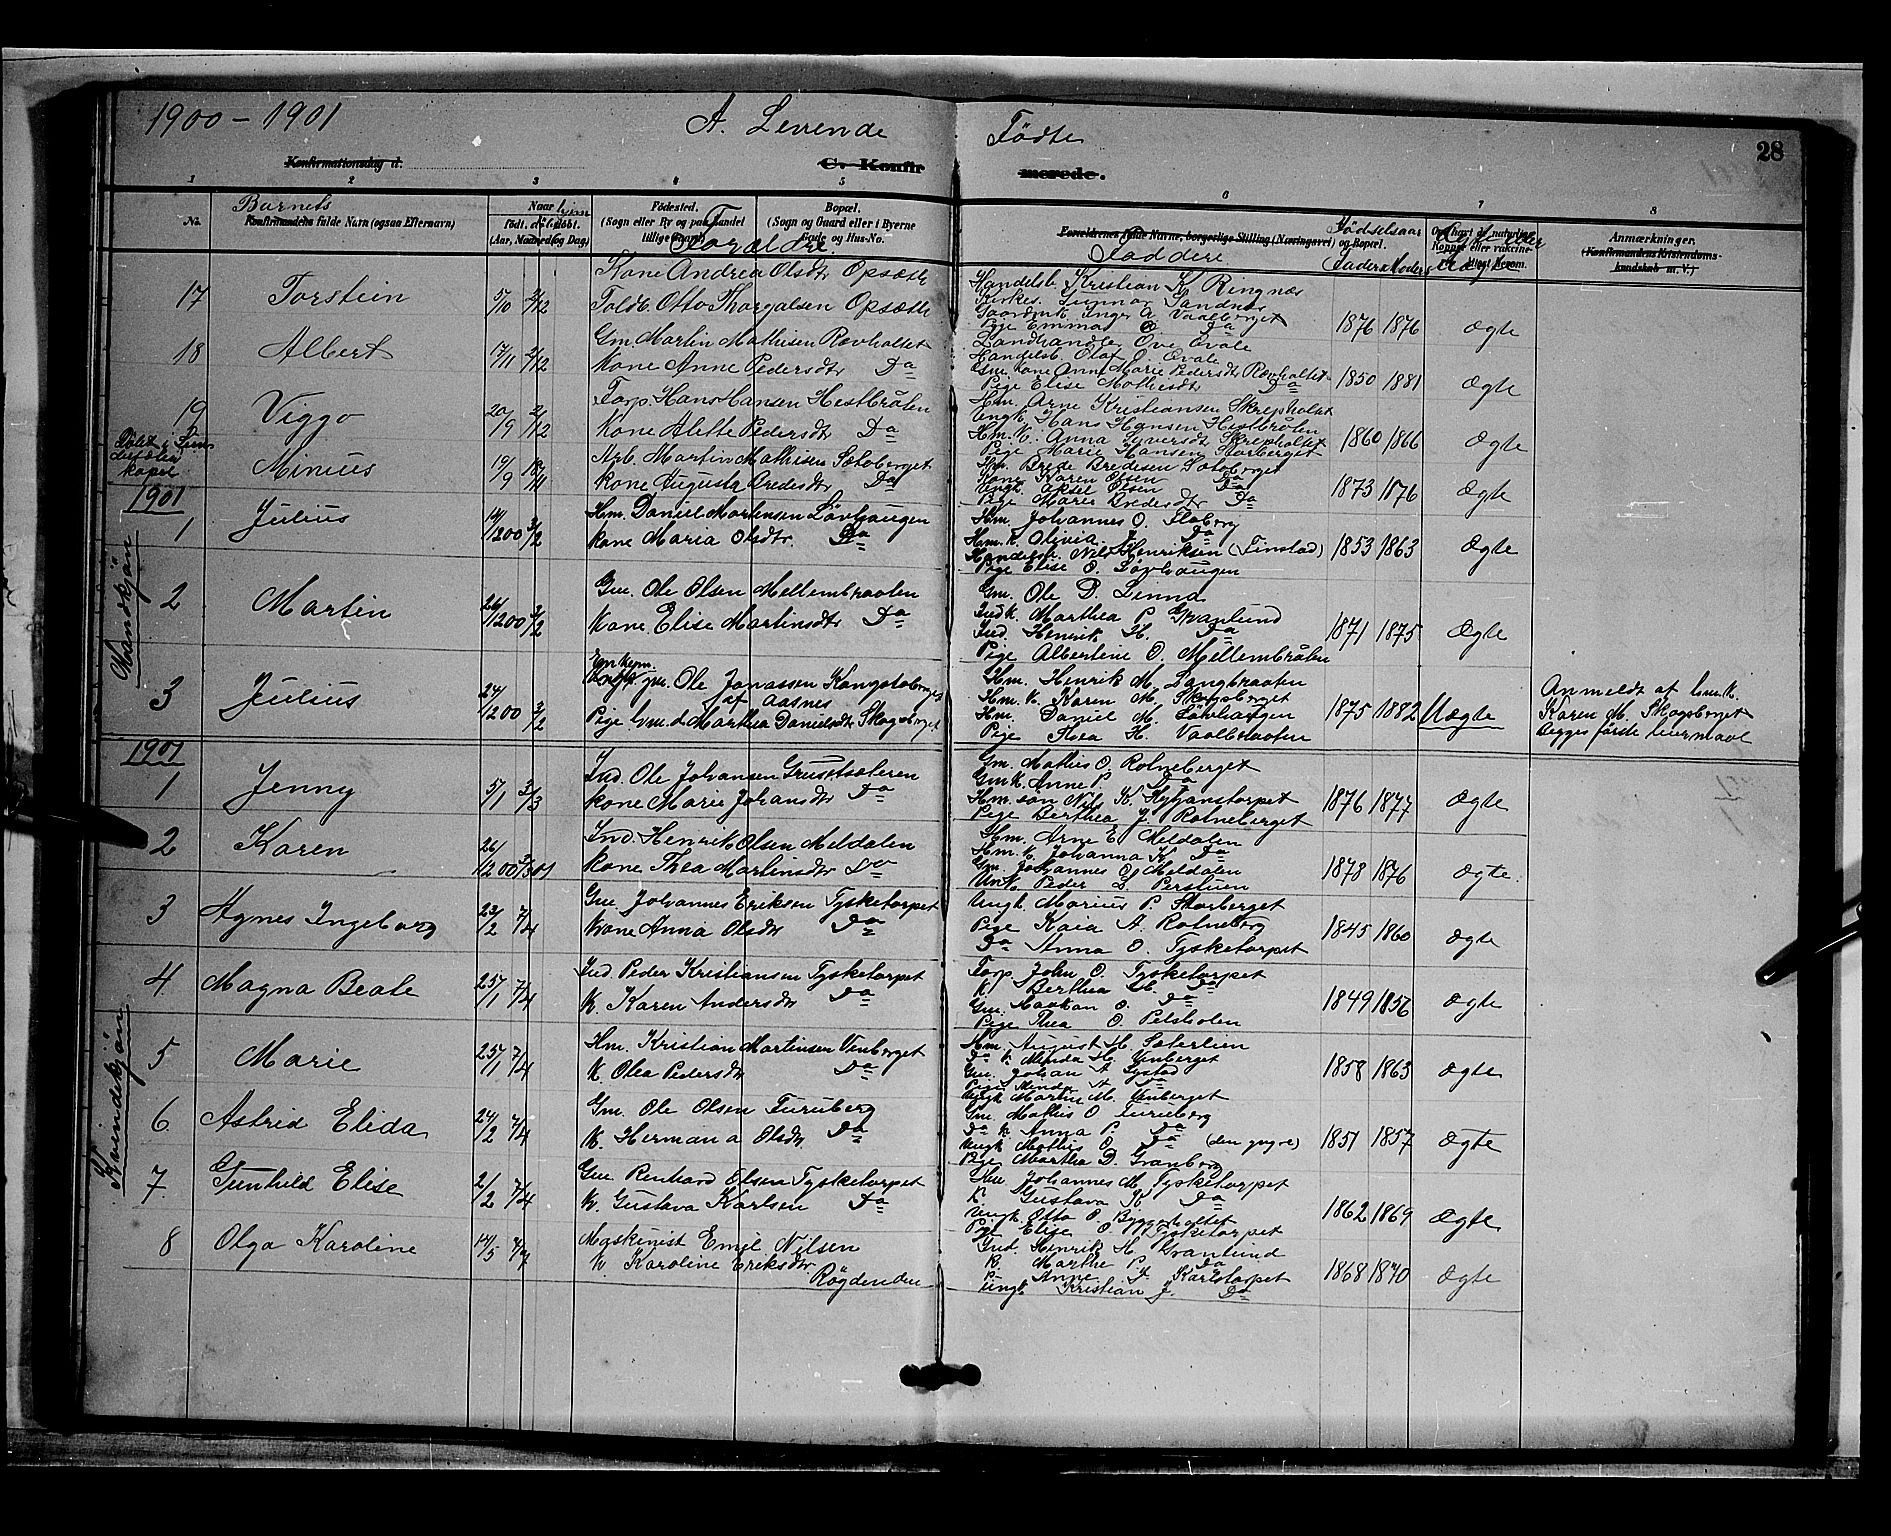 1900 - 1901
A. Levende
Födte
28
Konfirmationsdag d.
C. Konfir
merede.
1 2 3 4 5 6 7 8
No.
Barnets
Konfirmandens fulde Navn (ogsaa Efternavn)
Naar
Födt. döbt.
(Aar, Maaned og Dag)
Födested.
(Sogn eller By og paa Landet
tillige Gaard)
Bopæl.
(Sogn og Gaard eller i Byerne
Gade og Hus-No.
Foreldre
Forældrenes fulde Navne, borgerlige Stilling (Næringsvei) og Bopæl.
Faddere
Födselsaar
Faders Moders
Ægte eller
Anmærkninger.
(Konfirmandens Kristendoms-
kundskab m. V.)
17 Torstein 5/10 2/12
Kone Andrea Olsdtr Opsætt
Toldb. Otto Thorvalsen Opsætt
Handelsb. Kristian K. Ringnæs
Kirkes. Gunnar Sandnes
Gaardmk. Inger A. Vaalberget
Pige Emma O. Da
1876 1876 Ægte
18 Albert 17/11 2/12
Gm. Martin Mathisen Rævholtet
Kone Anne Pedersdtr Da
Landhandler Ove Evale
Handelsb. Olaf O. Evale
Gm. Kone Anne Marie Pedersdtr Rævholtet
Pige Elise Mathisdtr Da
1850 1881 Ægte
19 Viggo 20/9 2/12
Torp. Hans Hansen Hestbråten
Kone Alette Pedersdtr Da
Hm. Arne Kristiansen Skrepholtet
Ungk. Hans Hansen Hestbråten
Hm. K. Anna Syversdt Skrepholtet
Pige Marie Hansen Storberget
1860 1866 Ægte
Döbt i
kapel
Minius 19/9
Arb. Martin Mathisen Sætoberget
Kone Augusta Bredesdtr Da
Hm. Brede Bredesen Sætoberget
Kone Karen Olsen Da
Ungk. Aksel Olsen Da
Pige Maren Bredesdtr Da
1873 1876 Ægte
1901
Mandkjön
1 Julius 14/12 00 3/2
Hm. Daniel Martinsen Lövhaugen
Kone Maria Olsdtr. Da
Hm. Johannes O. Floberg
Hm. K. Olivia J. Da
Handelsb. Nils Henriksen (Finstad)
Pige Elise O. Lövhaugen
1853 1863 Ægte
2 Martin 26/12 00 3/2
Gm. Ole Olsen Mellembraaten
Kone Elise Martinsdtr Da
Gm. Ole P. Linna
Indk. Marthea P. Granlund
Ind. Henrik H. Da
Pige Albertine O. Mellembråten
1871 1875 Ægte
3 Julius 24/12 00 3/2
Enkem.
Ungk. gm. Ole Jonassen Kongstoberget
af Aasnes
Pige hm.d. Marthea Danielsdtr Skogsberget
Hm. Henrik M. Langbraaten
Hm. K. Karen M. Skogsberget
Hm. Daniel M. Lövhaugen
Pige Thea H. Vaalbraaten
1875 1882 Uægte
Anmeldt af hm. k.
Karen M. Skogsberget
begges förste leiermaal
1901
Kvindekjön
1 Jenny 5/1 3/3
Ind. Ole Johansen Grusetsæteren
Kone Marie Johansdtr Da
Gm. Mathis O. Rotneberget
Gmk. Anne P. Da
Hm. sön Nils K. Kyljanstorpet
Pige Berthea J. Rotneberget
1876 1877 Ægte
2 Karen 26/12 00 3/3 01
Ind. Henrik Olsen Meldalen
Kone Thea Martinsdtr Do
Hm. Arne E. Meldalen
Hm. K. Johanna K. Da
Gm. Johannes O. Meldalen
Unk. Peder L. Perstuen
1878 1876 Ægte.
3 Agnes Ingeborg 23/2 7/4
Gm. Johannes Eriksen Tysketorpet
Kone Anna Olsdtr Da
Ungk. Marius P. Storberget
Pige Kaia A. Rotneberg
Da Anna O. Tysketorpet
1845 1860 Ægte
4 Magna Beate 25/1 7/4
Ind. Peder Kristiansen Tysketorpet
K. Karen Andersdtr Da
Torp. John O. Tysketorpet
K. Berthea M. Da
Gm. Haakan O. Da
Pige Thea O. Petsholen
1849 1856 Ægte
5 Marie 25/1 7/4
Hm. Kristian Martinsen Vinberget
K. Olea Pedersdtr Da
Hm August H. Sæterlien
Da k. Minda H. Vinberget
Gm. Johan A. Systad
Pige Minda A. Da
Ungk Martin M. Vinberget
1858 1863 Ægte
6 Astrid Elida 24/2 7/4
Gm. Ole Olsen Furuberg
K. Hermana Olsdtr Da
Gm. Mathis O Furuberg
Da k Anna P. Da
Ungk Mathis O. Da (den yngre)
Pige Martha D. Granberg
1851 1857 Ægte
7 Gunhild Elise 2/2 7/4
Gm Reinhard Olsen Tysketorpet
K. Gustava Karlsen Da
Gm Johannes M. Tysketorpet
K Gustava K Da
Ungk Otto P. Byggerholtet
Pige Elise O. Tysketorpet
1862 1869 Ægte
8 Olga Karoline 14/5 7/7
Maskinist Emil Nilsen
K Karoline Eriksdtr
Rögdenden
Ind. Henrik H. Granlund
K. Marthe P. Da
P. Anne J Karlstorpet
Ungk Kristian J. Da
1868 1870 Ægte